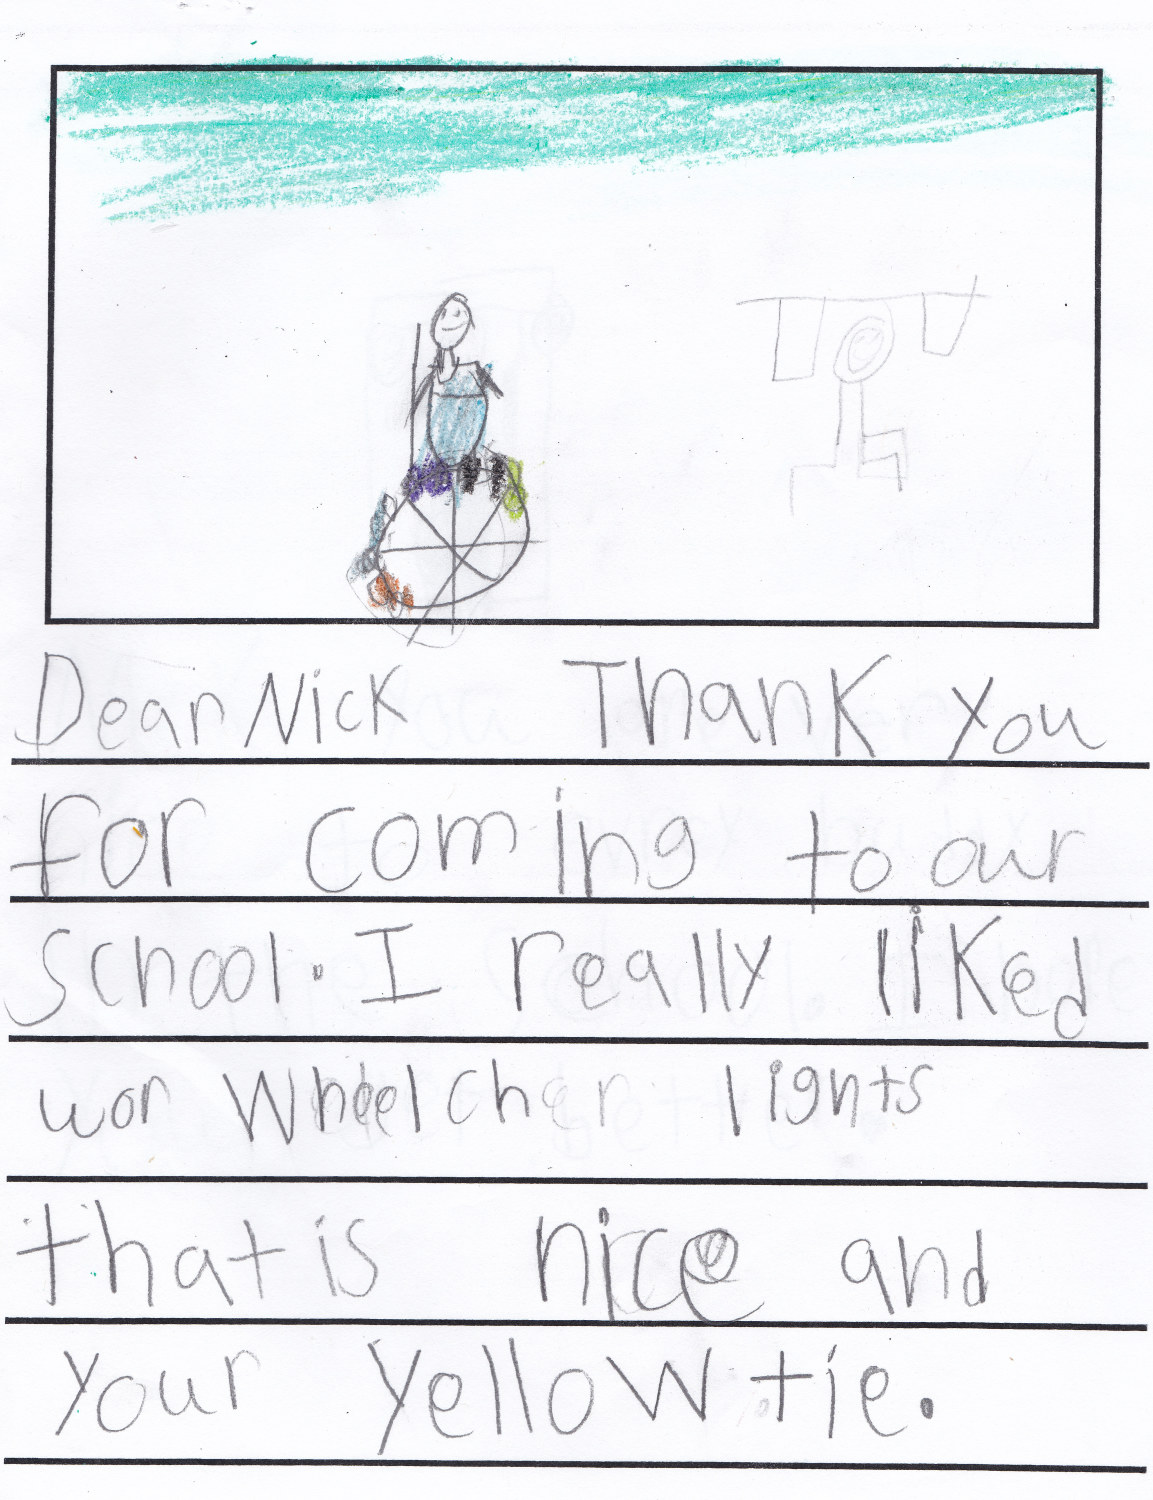 Dear Nick Thank you
for coming to our
school. I really liked
uor wheelcher lights
that is nice and
your yellow tie.